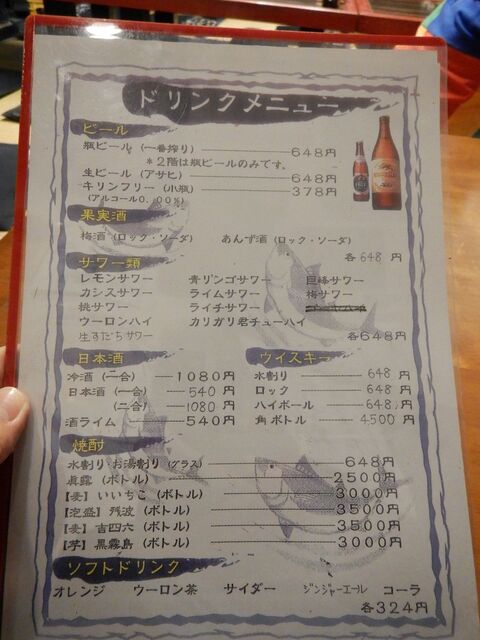 ドリンクメニュー
ビール
瓶ビール (一番搾り) 648円
*2階は瓶ビールのみです。
生ビール (アサヒ) 648円
キリンフリー (小瓶) 378円
(アルコール0.00%)
果実酒
梅酒 (ロック・ソーダ) あんず酒 (ロック・ソーダ)
各648円
サワー類
レモンサワー 青リンゴサワー 巨峰サワー
カシスサワー ライムサワー 梅サワー
桃サワー ライチサワー
ウーロンハイ カリガリ君チューハイ
生すだちサワー 各648円
日本酒
冷酒 (一合) 1080円
日本酒 (一合) 540円
(二合) 1080円
酒ライム 540円
ウイスキー
水割り 648円
ロック 648円
ハイボール 648円
角ボトル 4500円
焼酎
水割り・お湯割り (グラス) 648円
眞露 (ボトル) 2500円
【麦】いいちこ (ボトル) 3000円
【泡盛】残波 (ボトル) 3500円
【麦】吉四六 (ボトル) 3500円
【芋】黒霧島 (ボトル) 3000円
ソフトドリンク
オレンジ ウーロン茶 サイダー ジンジャーエール コーラ
各324円